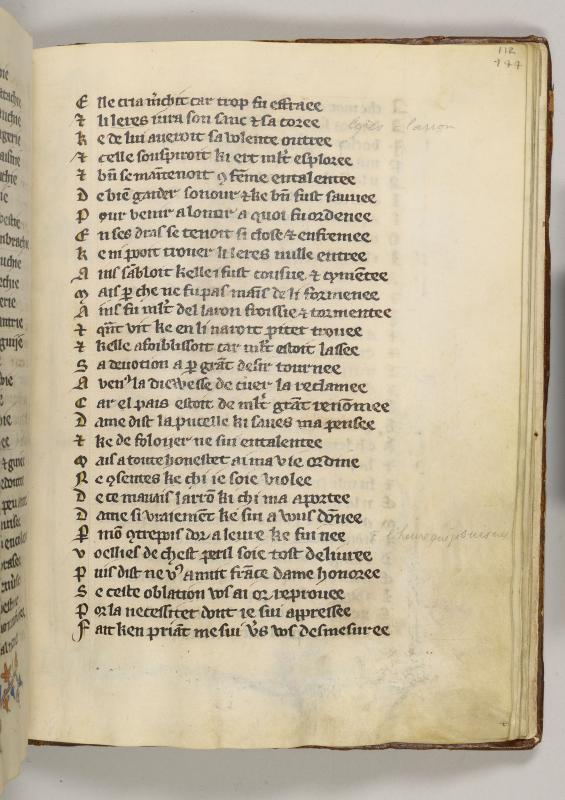 112
144
E lle cria m̄chit car trop fu effraee
⁊ li leres iura son sanc ⁊ sa coree
K e de lui aueroit sa volente outree
⁊ celle souspiroit ki ert ml̄t esploree
⁊ bn̄ se maintenoit ꝯ feme entalentee
D e bien garder sonour ⁊ ke bn̄ fust sauuee
P our venir a lonor a quoi fu ordenee
E n ses dras se tenoit si close ⁊ enfremee
K e ni pooit trouer li leres nulle entree
A ins sābloit kelle i fust cousue ⁊ cymētee
M ais ꝑ che ne fu pas mains de li formenee
A ins fu ml̄t del laron froissie ⁊ tormentee
⁊ qn̄t vit ke en li naroit pitet trouee
⁊ kelle afoiblissoit car ml̄t estoit lassee
S a deuotion a ꝑ grāt desir tournee
A venꝰ la diewesse de cuer la reclamee
C ar el pais estoit de ml̄t grāt renōmee
D ame dist la pucelle ki saues ma pensee
⁊ ke de folouer ne sui entalentee
M ais a toute honestet ai ma vie ordinee
N e ꝯsentes ke chi ie soie violee
D e ce mauais larrō ki chi ma aportee
D ame si vraiement ke sui a vous dōnee
P mō ꝯtrepois dor a leure ke fui nee
V oellies de chest peril soie tost deliuree
P uis dist ne vꝰ anuit frāce dame honoree
S e ceste oblation vꝰ ai or reprouee
P or la necessitet dont ie sui appressee
F ait ken priāt me sui v̄s vos desmesuree